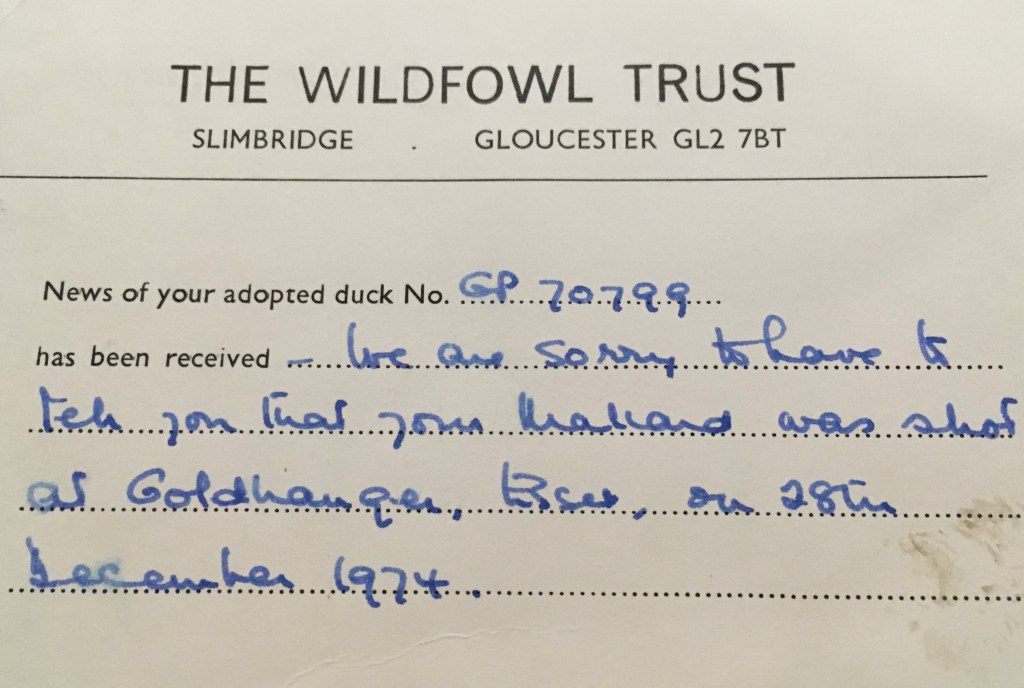 THE WILDFOWL TRUST
SLIMBRIDGE . GLOUCESTER GL2 7BT
News of your adopted duck No. GP 70799
has been received – We are sorry to have to
tell you that your Mallard was shot
at Goldhanger, Essex, on 28th
December 1974.